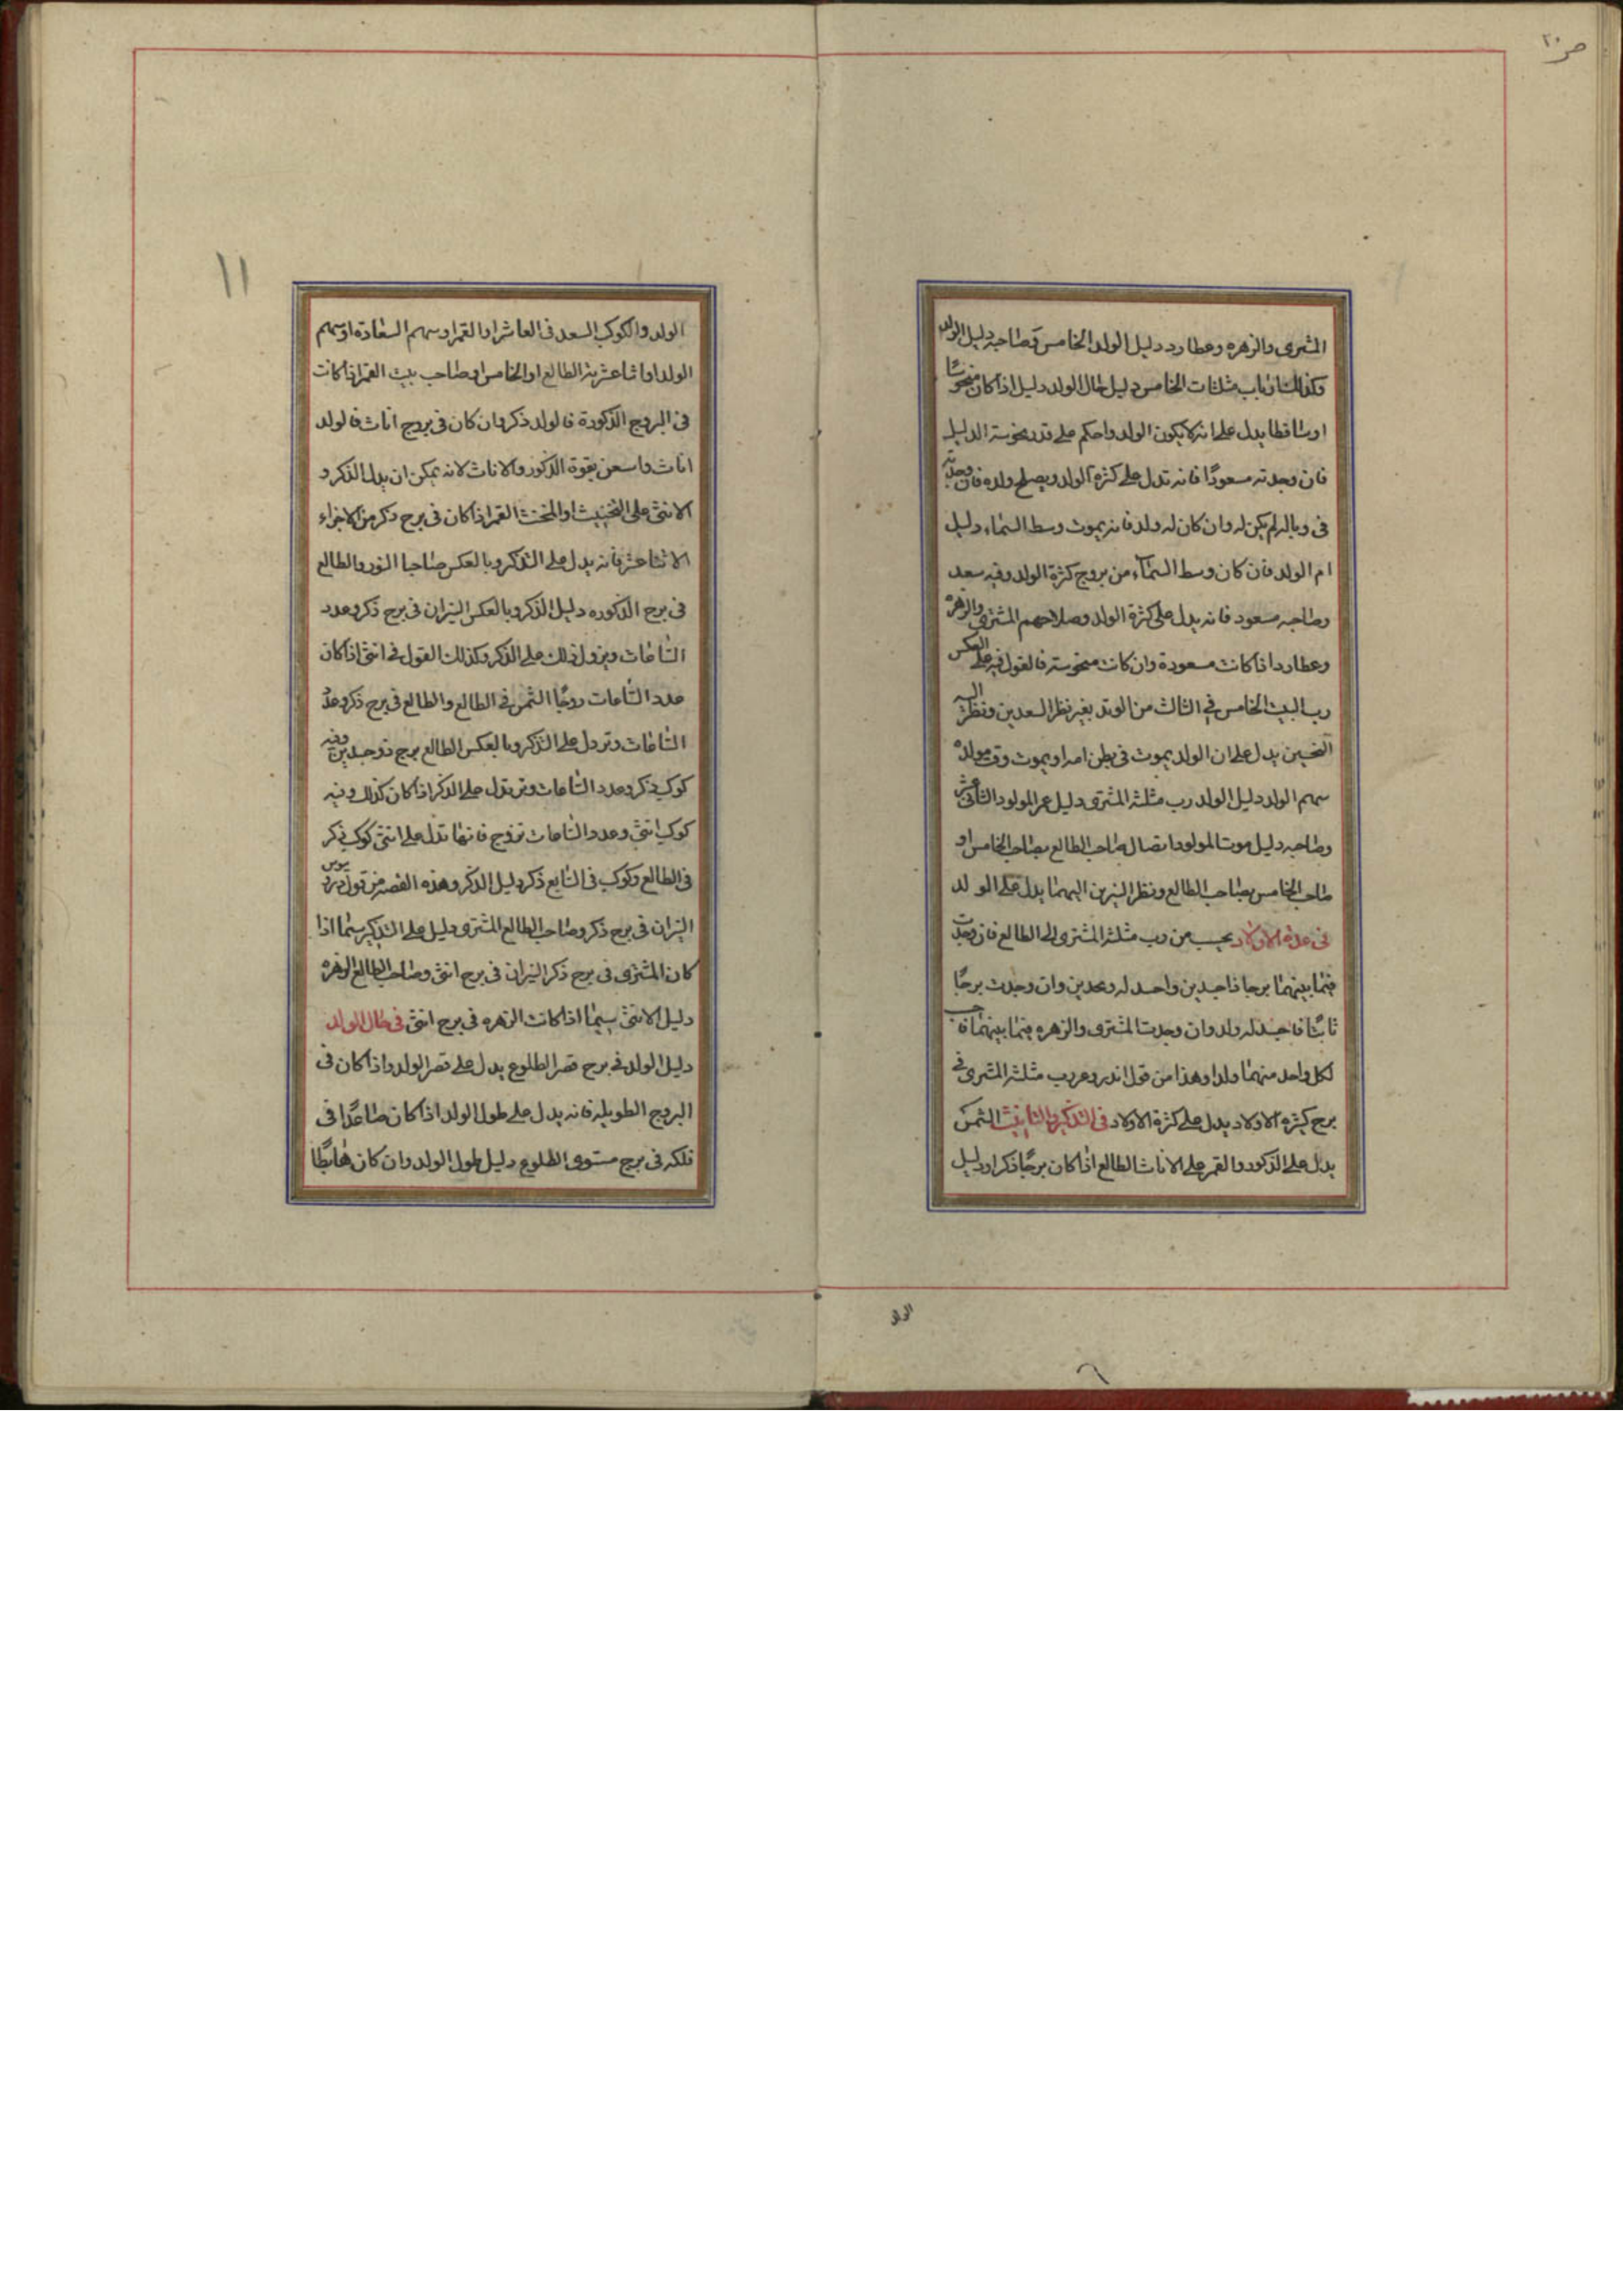 ص ٢٠
المشترى والزهره وعطارد دليل الولد الخامس وصاحبه دليل الولد
وكذلك ارباب مثلثات الخامس دليل حال الولد دليل اذا كان منحوسًا
اوساقطا يدل على انه لا يكون الولد واحكم على قدر نحوسته الدليل
فان وجدته مسعودًا فانه تدل على كثرة الولد ويصلح ولده فان وجدته
فى وباله لم يكن له وان كان له ولد فانه يموت وسط السماء دليل
ام الولد فان كان وسط السماء من بروج كثرة الولد وفيه سعد
وصاحبه مسعود فانه يدل على كثرة الولد وصلاحهم المشترى والزهره
وعطارد اذا كانت مسعودة وان كانت منحوسته فالقول فيه على العكس
رب البيت الخامس في الثالث من الوتد بغير نظر السعدين ونظر اليه
النحسين يدل على ان الولد يموت فى بطن امه او يموت وقت مولده
سهم الولد دليل الولد رب مثلثه المشترى دليل عمر المولود الثانى عشر
وصاحبه دليل موت المولود اتصال صاحب الطالع بصاحب الخامس او
صاحب الخامس بصاحب الطالع ونظر النيرين اليهما يدل على الولد
فى عدة الاولاد يحسب من رب مثلثه المشترى الى الطالع فان وجدت
فيما بينهما برجا ذا جسدين واحسد له وعدين وان وجدت برجًا
ثابتًا فاحسد له ولد وان وجدت المشترى والزهره فيما بينهما فاحسب
لكل واحد منهما ولدا وهذا من قول اندروغر رب مثلثه المشترى فى
برج كثيره الاولاد يدل على كثرة الاولاد فى التذكير والتانيث الشمس
يدل على الذكور والقمر على الاناث الطالع اذا كان برجًا ذكرا ودليل
الولد
١١
الولد والكوكب السعد فى العاشر او القمر او سهم السعادة او سهم
الولد او اثنا عشريه الطالع او الخامس او صاحب بيت القمر اذا كانت
فى البروج الذكورة فالولد ذكر وان كان فى بروج اناث فالولد
اناث واسعن بقوة الذكور والاناث لانه يمكن ان يدل الذكر و
الانثى على التخنيث او المخنث القمر اذا كان فى برج ذكر من الاجزاء
الاثنا عشر فانه يدل على التذكر وبالعكس صاحبا النور والطالع
فى برج الذكوره دليل الذكر وبالعكس النيران فى برج ذكر وعدد
الساعات ويزول ذلك على الذكر وكذلك القول فى انثى اذا كان
عدد الساعات زوجًا الشمس فى الطالع والطالع فى برج ذكر وعدد
الساعات وتر دل على التذكر وبالعكس الطالع برج ذو جسدين وفيه
كوكب ذكر وعدد الساعات وتر تدل على الذكر اذا كان كذلك وفيه
كوكب انثى وعدد الساعات تزوج فانها تدل على انثى كوكب ذكر
فى الطالع وكوكب فى السابع ذكر دليل الذكر وهذه القصه من قول
النيران فى برج ذكر وصاحب الطالع المشترى دليل على التذكير سيما اذا
كان المشترى فى برج ذكر النيران فى برج انثى وصاحب الطالع الزهره
دليل الانثى سيما اذا كانت الزهره فى برج انثى فى حال الولد
دليل الولد فى برج قصر الطلوع يدل على قصر الولد واذا كان فى
البروج الطويله فانه يدل على طول الولد اذا كان صاعدًا فى
فلكه فى برج مستوى الطلوع دليل طول الولد وان كان هابطًا